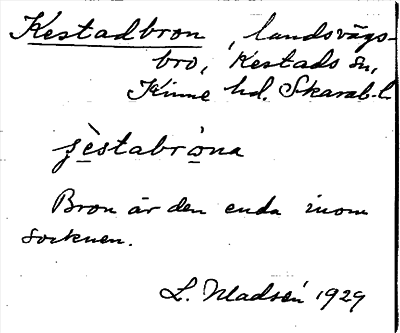 Kestadbron, landsvägs-
bro, Kestads sn,
Kinne hd. Skarab. l.
ʒèstabrò̱na
Bron är den enda inom
socknen.
L. Madsén 1929